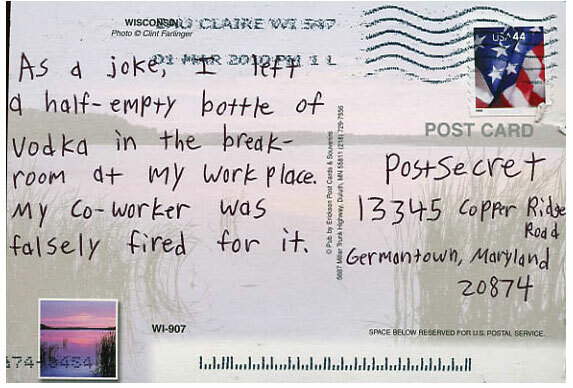 WISCONSIN
Photo © Clint Farlinger
EAU CLAIRE WI 547
01 MAR 2010 PM 1 L
USA 44
As a joke, I left
a half-empty bottle of
vodka in the break-
room at my workplace.
My co-worker was
falsely fired for it.
© Pub. by Erickson Post Cards & Souvenirs
5687 Miller Trunk Highway, Duluth, MN 55811 (218) 729-7556
POST CARD
PostSecret
13345 Copper Ridge
Road
Germantown, Maryland
20874
WI-907
SPACE BELOW RESERVED FOR U.S. POSTAL SERVICE.